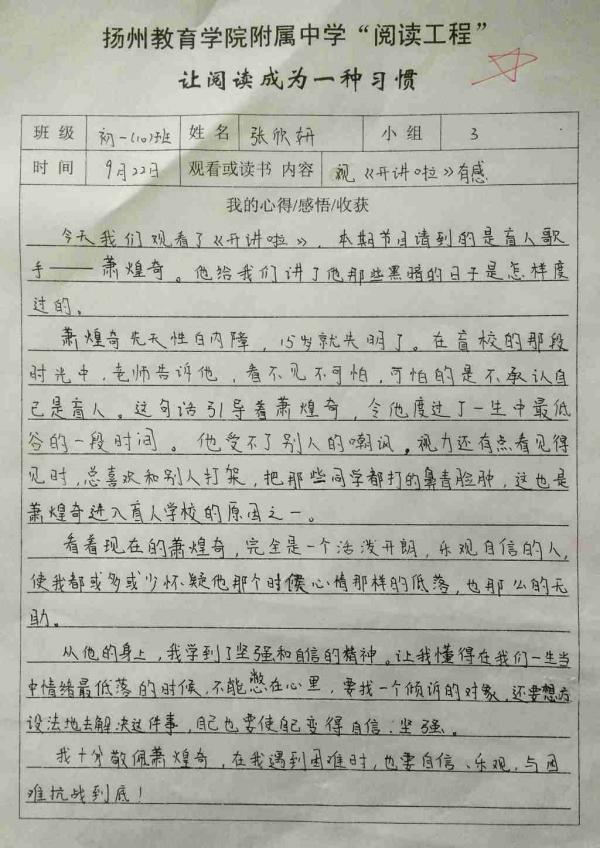 扬州教育学院附属中学“阅读工程”
让阅读成为一种习惯
班 级 初一(10)班 姓 名 张欣妍 小 组 3
时 间 9月22日 观看或读书 内容 观《开讲啦》有感
我的心得/感悟/收获
今天我们观看了《开讲啦》，本期节目请到的是盲人歌
手——萧煌奇。他给我们讲了他那些黑暗的日子是怎样度
过的。
萧煌奇先天性白内障，15岁就失明了。在盲校的那段
时光中，老师告诉他，看不见不可怕，可怕的是不承认自
己是盲人。这句话引导着萧煌奇，令他度过了一生中最低
谷的一段时间。他受不了别人的嘲讽，视力还有点看见得
见时，总喜欢和别人打架，把那些同学都打的鼻青脸肿，这也是
萧煌奇进入盲人学校的原因之一。
看看现在的萧煌奇，完全是一个活泼开朗，乐观自信的人，
使我都或多或少怀疑他那个时候心情那样的低落，也那么的无
助。
从他的身上，我学到了坚强和自信的精神。让我懂得在我们一生当
中情绪最低落的时候，不能憋在心里，要找一个倾诉的对象，还要想方
设法地去解决这件事，自己也要使自己变得自信、坚强。
我十分敬佩萧煌奇，在我遇到困难时，也要自信、乐观，与困
难抗战到底！